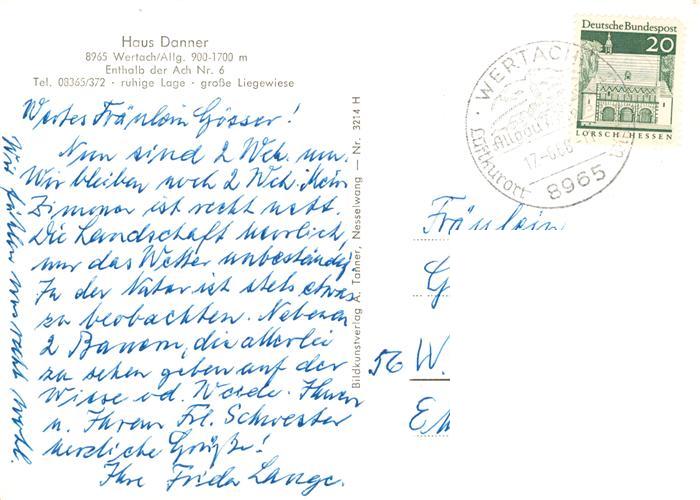 Haus Danner
8965 Wertach/Allg. 900-1700 m
Enthalb der Ach Nr. 6
Tel. 08365/372 - ruhige Lage - große Liegewiese
Wertes Fräulein Gösser!
Nun sind 2 Wch. um.
Wir bleiben noch 2 Wch. Mein
Zimmer ist recht nett.
Die Landschaft herrlich,
nur das Wetter unbeständig.
In der Natur ist stets etwas
zu beobachten. Nebenan
2 Bauern, die allerlei
zu sehen geben auf der
Wiese od. Weide. Ihnen
u. Ihrem Frl. Schwester
herzliche Grüße!
Ihre Frieda Lange.
Wir fühlen uns recht wohl.
Bildkunstverlag A. Tanner, Nesselwang — Nr. 3214 H
Deutsche Bundespost
20
LORSCH/HESSEN
WERTACH
Allgäu
Luftkurort
8965
Fräulein
G
56 W.